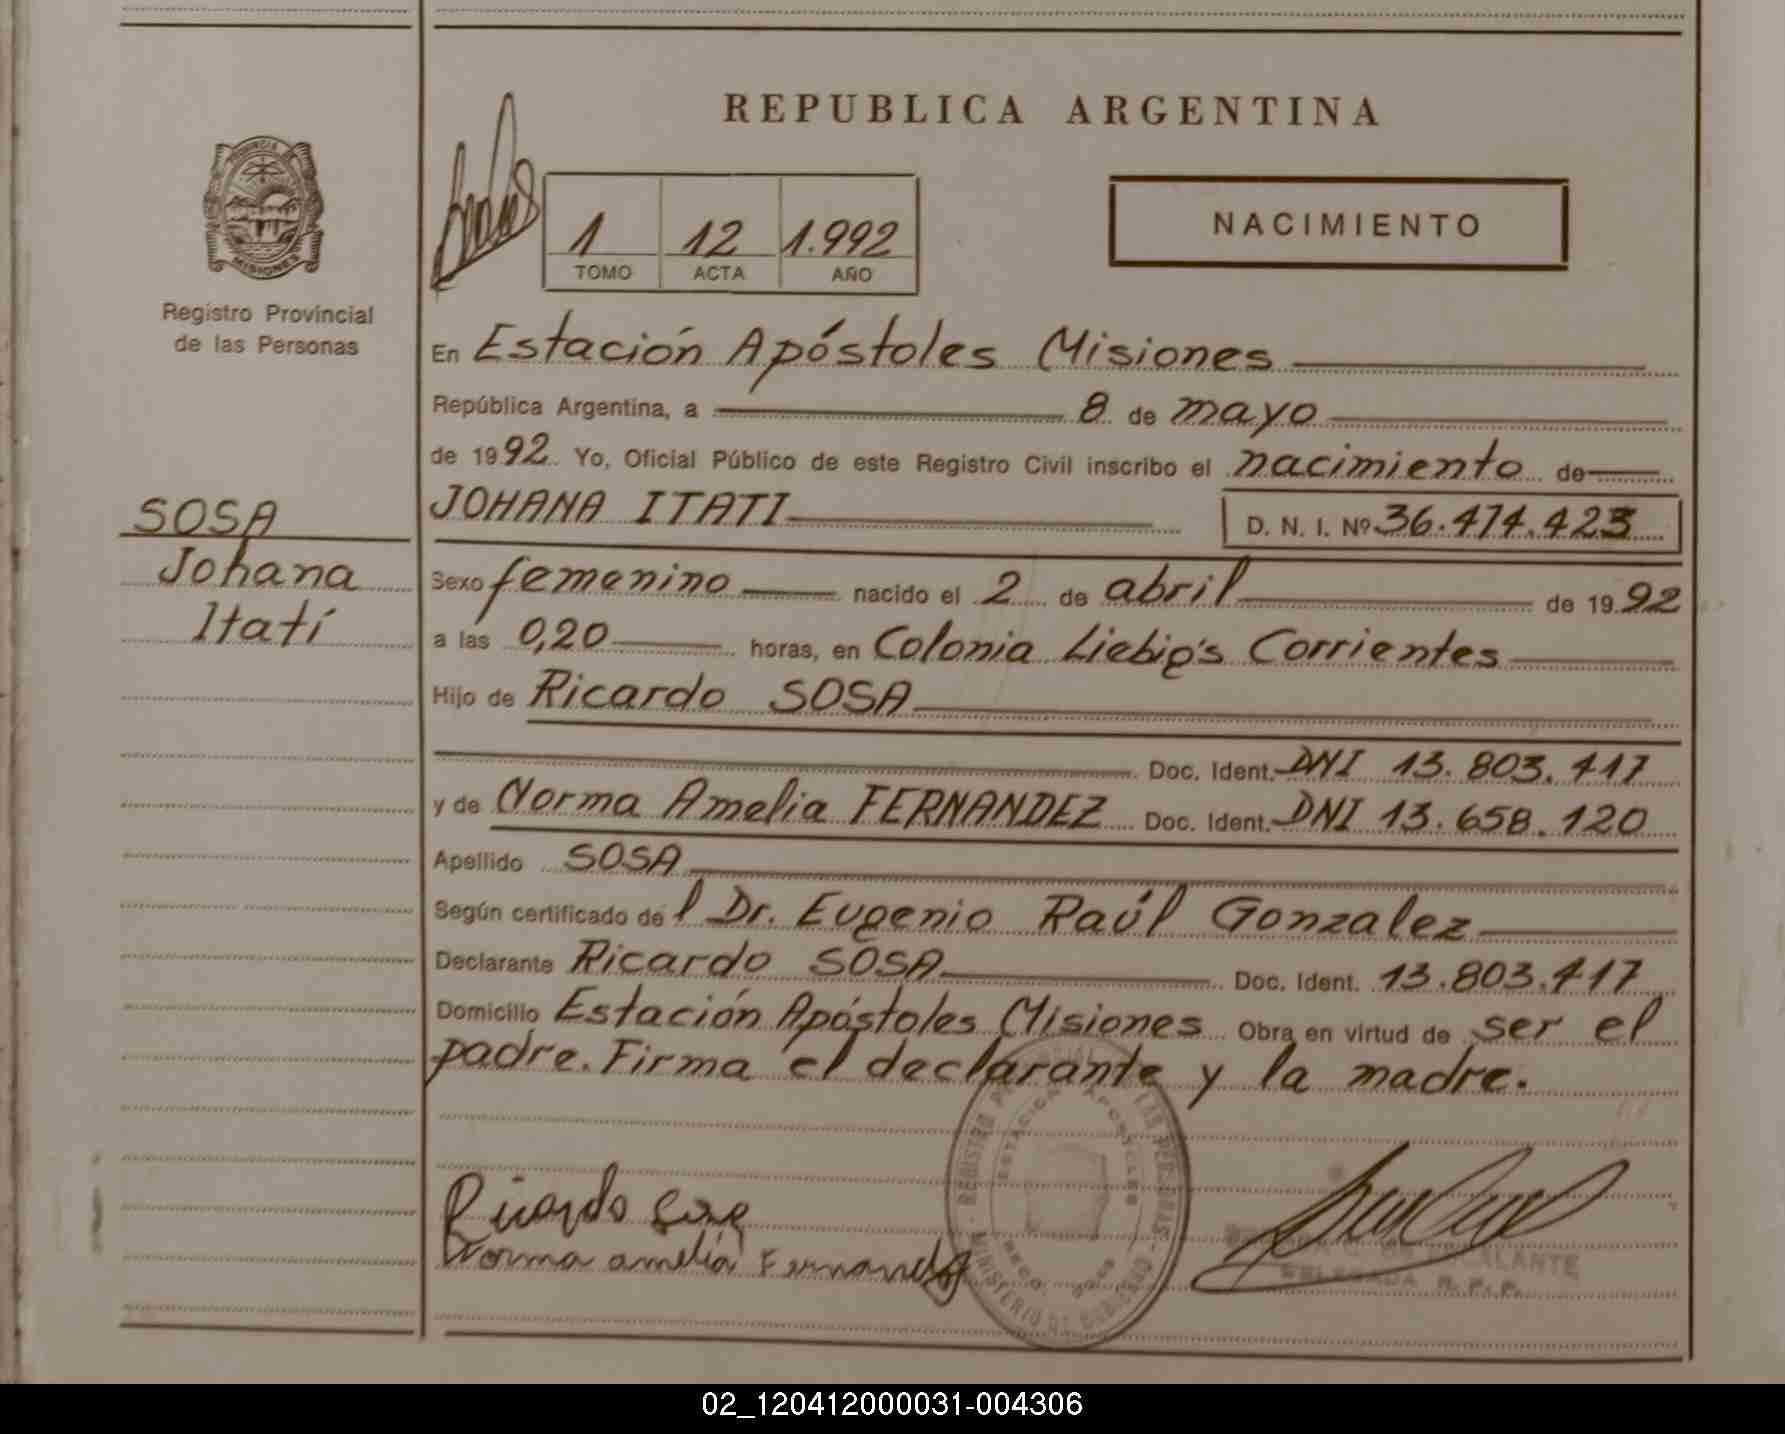 REPUBLICA ARGENTINA
PROVINCIA DE
MISIONES
Registro Provincial
de las Personas
1 12 1.992
TOMO ACTA AÑO
NACIMIENTO
En Estación Apóstoles Misiones
República Argentina, a 8 de mayo
de 1992. Yo, Oficial Público de este Registro Civil inscribo el nacimiento de
SOSA
Johana
Itatí
JOHANA ITATI D. N. I. Nº 36.474.423
Sexo femenino nacido el 2 de abril de 1992
a las 0,20 horas, en Colonia Liebig's Corrientes
Hijo de Ricardo SOSA
Doc. Ident. DNI 13.803.417
y de Norma Amelia FERNANDEZ Doc. Ident. DNI 13.658.120
Apellido SOSA
Según certificado del Dr. Eugenio Raúl Gonzalez
Declarante Ricardo SOSA Doc. Ident. 13.803.417
Domicilio Estación Apóstoles Misiones Obra en virtud de ser el
padre. Firma el declarante y la madre.
Ricardo Sosa
Norma amelia Fernandez
REGISTRO PROVINCIAL DE LAS PERSONAS
ESTACION APOSTOLES
MINISTERIO DE GOBIERNO
DELEGADA R.P.P.
02_120412000031-004306